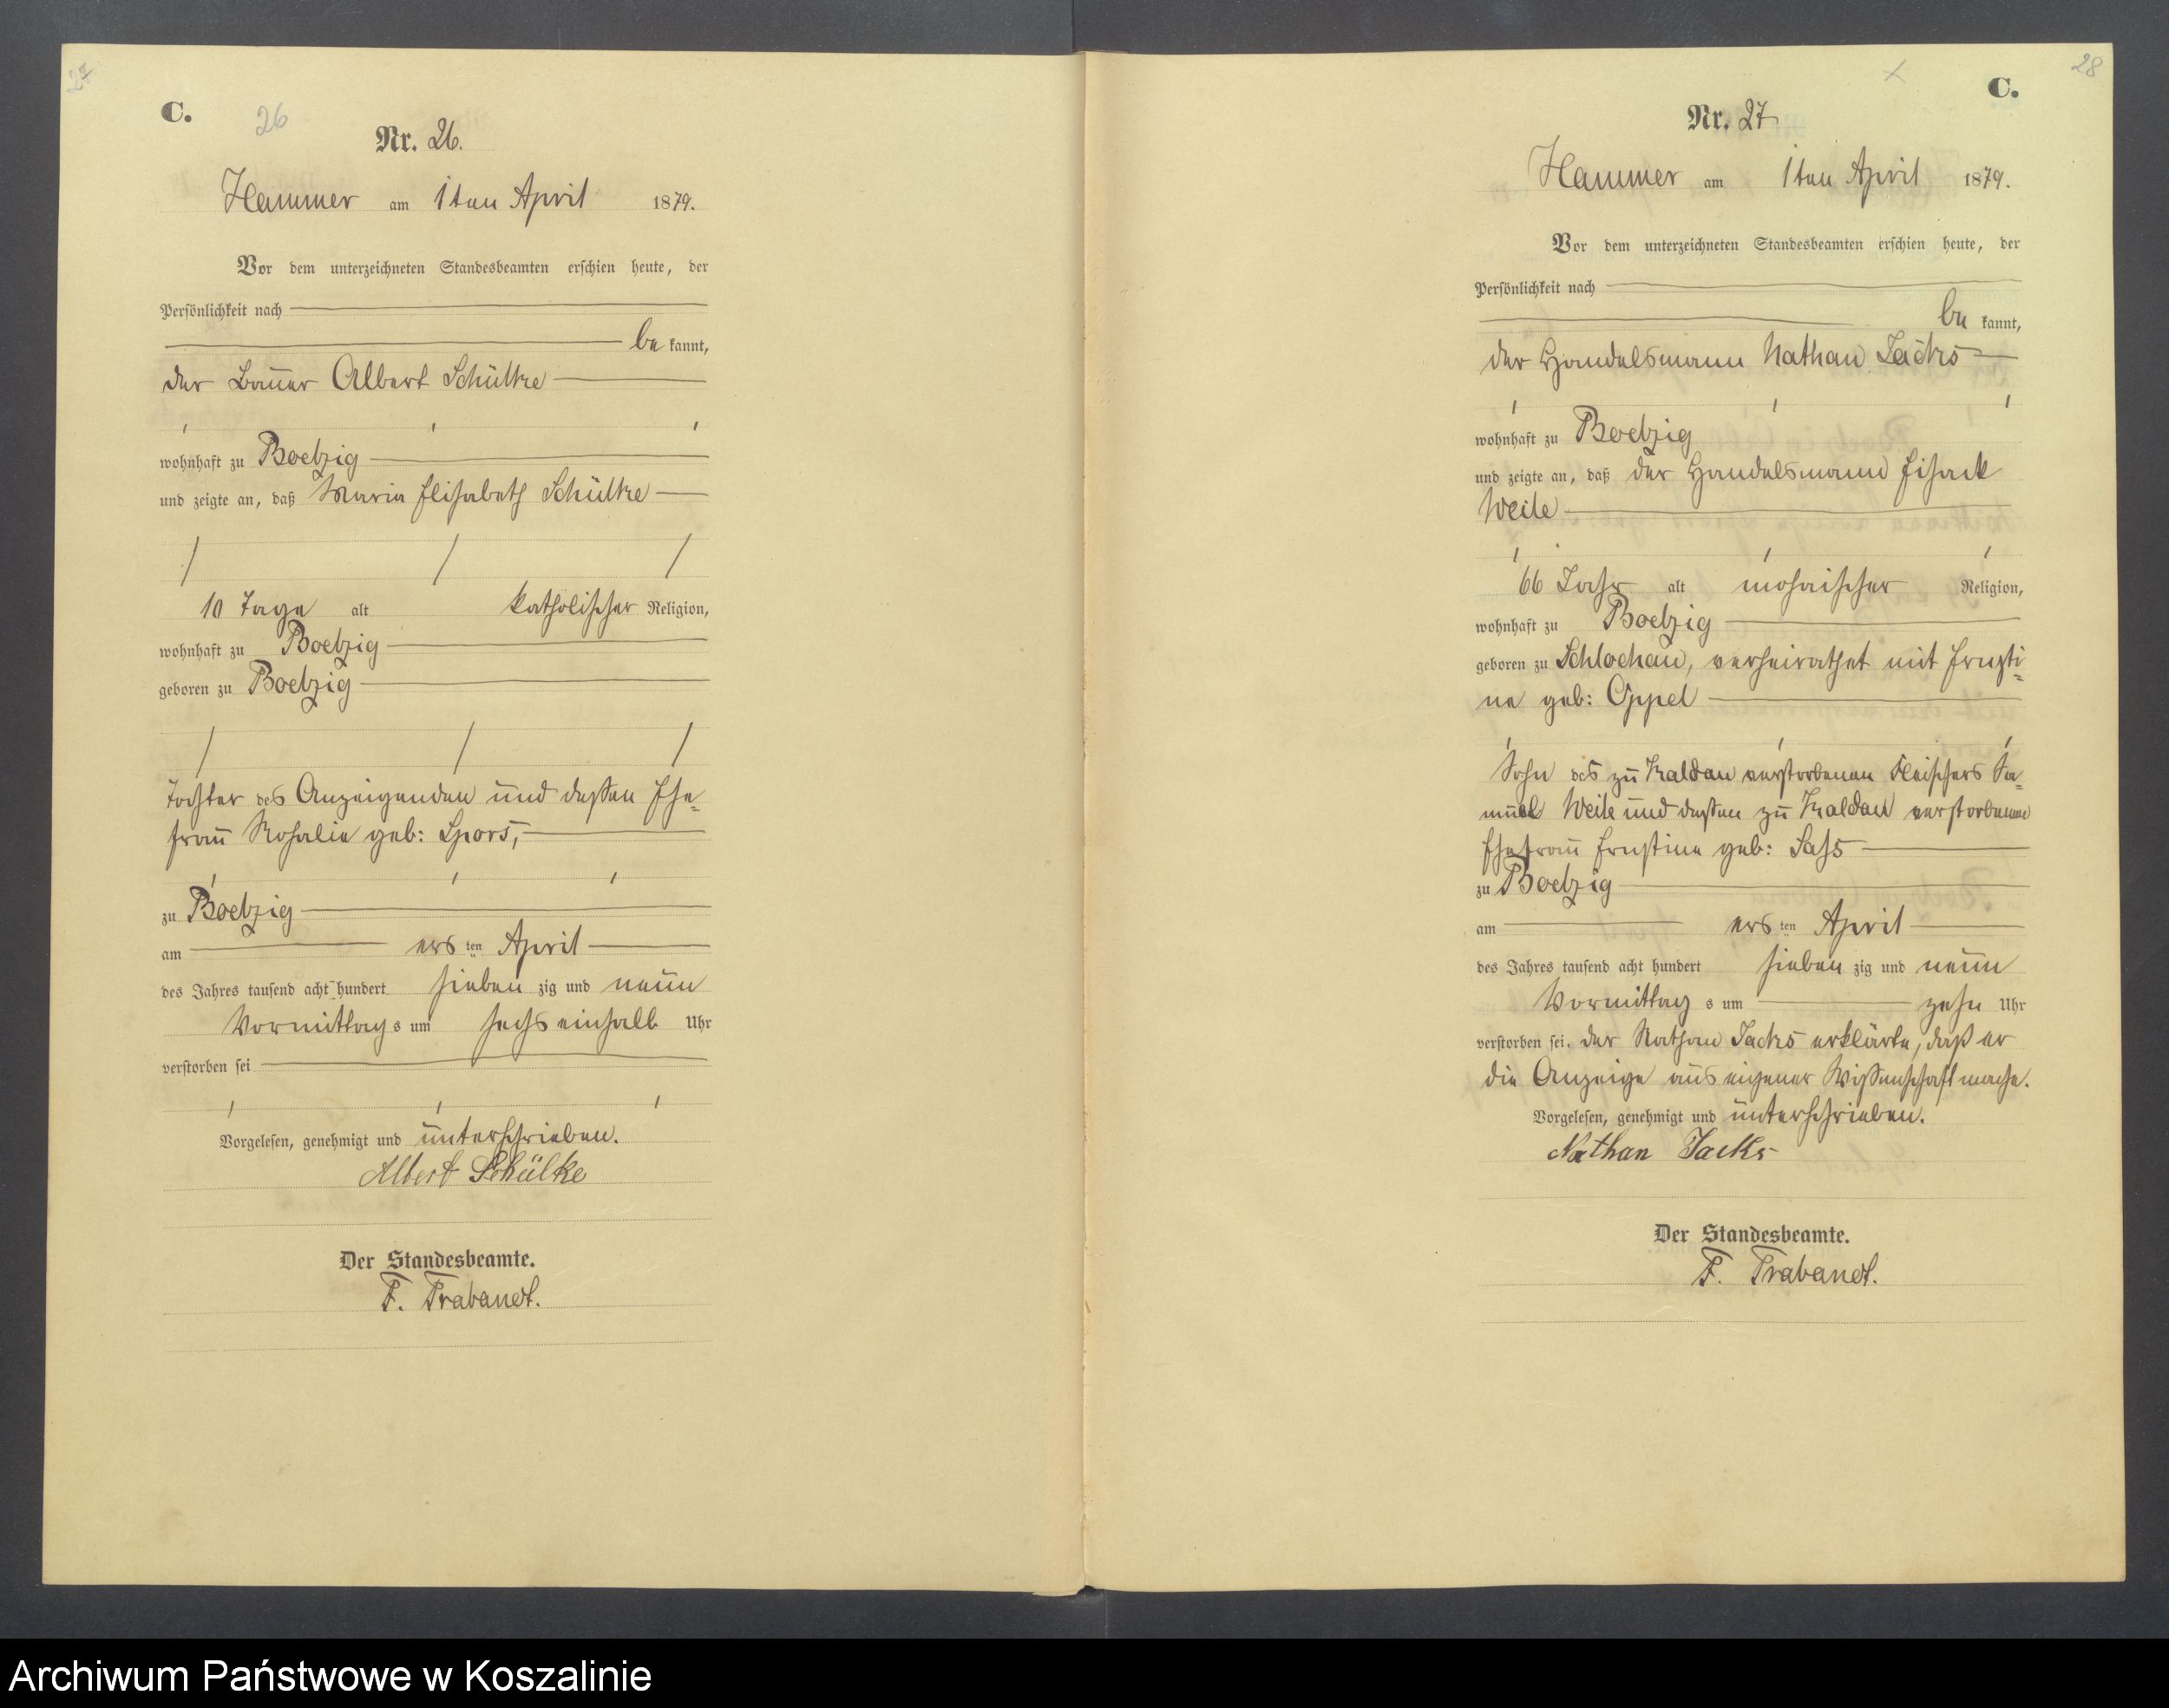 27
C.
26
Nr. 26.
Hammer am 1ten April 1879.
Vor dem unterzeichneten Standesbeamten erschien heute, der
Persönlichkeit nach
be kannt,
der Bauer Albert Schülke
wohnhaft zu Boetzig
und zeigte an, daß Maria Elisabeth Schülke
10 Tage alt katholischer Religion,
wohnhaft zu Boetzig
geboren zu Boetzig
Tochter des Anzeigenden und dessen Ehe-
frau Rosalie geb: Spors,
zu Boetzig
am ersten April
des Jahres tausend acht hundert sieben zig und neun
Vormittags um sechs einhalb Uhr
verstorben sei
Vorgelesen, genehmigt und unterschrieben.
Albert Schülke
Der Standesbeamte.
F. Trabandt.
28
C.
Nr. 27
Hammer am 1ten April 1879.
Vor dem unterzeichneten Standesbeamten erschien heute, der
Persönlichkeit nach
be kannt,
der Handelsmann Nathan Jacks
wohnhaft zu Boetzig
und zeigte an, daß der Handelsmann Eisack
Weile
66 Jahr alt mosaischer Religion,
wohnhaft zu Boetzig
geboren zu Schlochau, verheirathet mit Ernsti-
ne geb: Oppel
Sohn des zu Kaldau verstorbenen Fleischers Sa-
muel Weile und dessen zu Kaldau verstorbenen
Ehefrau Ernstine geb:
zu Boetzig
am ersten April
des Jahres tausend acht hundert sieben zig und neun
Vormittag s um zehn Uhr
verstorben sei. der Nathan Jacks erklärte, daß er
die Anzeige aus eigener Wissenschaft mache.
Vorgelesen, genehmigt und unterschrieben.
Nathan Jacks
Der Standesbeamte.
F. Trabandt.
Archiwum Państwowe w Koszalinie